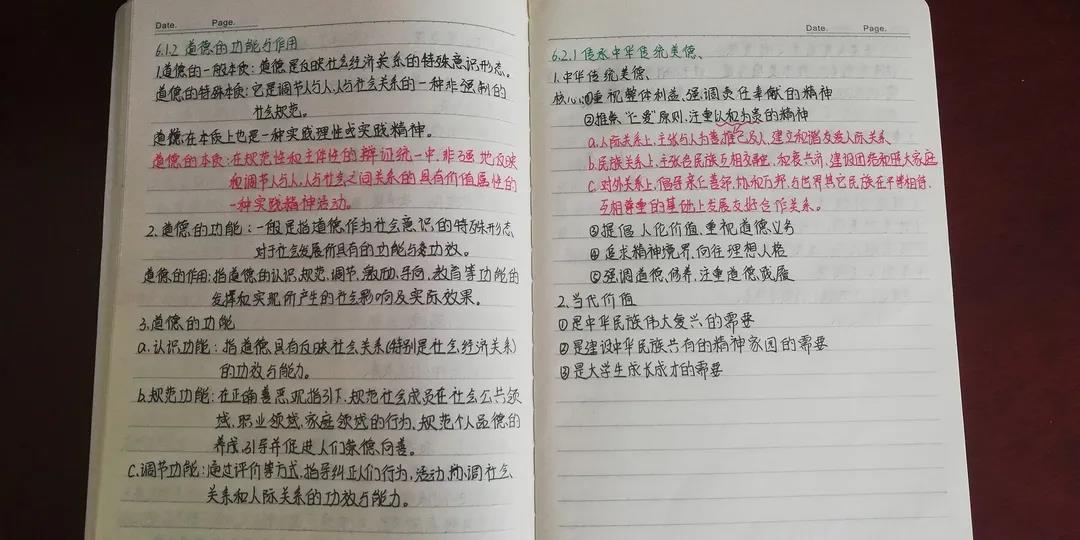 Date. Page.
6.1.2 道德的功能与作用
1.道德的一般本质:道德是反映社会经济关系的特殊意识形态。
道德的特殊本质:它是调节人与人,人与社会关系的一种非强制的
社会规范。
道德在本质上也是一种实践理性或实践精神。
道德的本质:在规范性和主体性的辩证统一中,非强 地反映
和调节人与人,人与社会之间关系的具有价值属性的
一种实践精神活动。
2.道德的功能:一般是指道德作为社会意识的特殊形态
对于社会发展所具有的功能与功效。
道德的作用:指道德的认识、规范、调节、激励、导向、教育等功能的
发挥和实现所产生的社会影响及实际效果。
3.道德的功能
a.认识功能:指道德具有反映社会关系(特别是社会经济关系)
的功效与能力。
b.规范功能:在正确善恶观指引下,规范社会成员在社会公共领
域、职业领域、家庭领域的行为、规范个人品德的
养成,引导并促进人们崇德向善。
C.调节功能:通过评价等方式,指导纠正人们行为、活动,协调社会
关系和人际关系的功效与能力。
Date. Page.
6.2.1 传承中华传统美德、
1.中华传统美德、
核心:①重视整体利益、强调责任奉献的精神
②推崇"仁爱"原则,注重以和为贵的精神
a.人际关系上,主张与人为善推己及人,建立和谐友爱人际关系
b.民族关系上,主张各民族互相交融,和衷共济,建设团结和睦大家庭
C.对外关系上,倡导亲仁善邻,协和万邦,与世界其它民族在平等相待、
互相尊重的基础上发展友好合作关系。
③提倡人伦价值、重视道德义务
④追求精神境界,向往理想人格
⑤强调道德修养,注重道德践履
2.当代价值
①是中华民族伟大复兴的需要
②是建设中华民族共有的精神家园的需要
③是大学生成长成才的需要